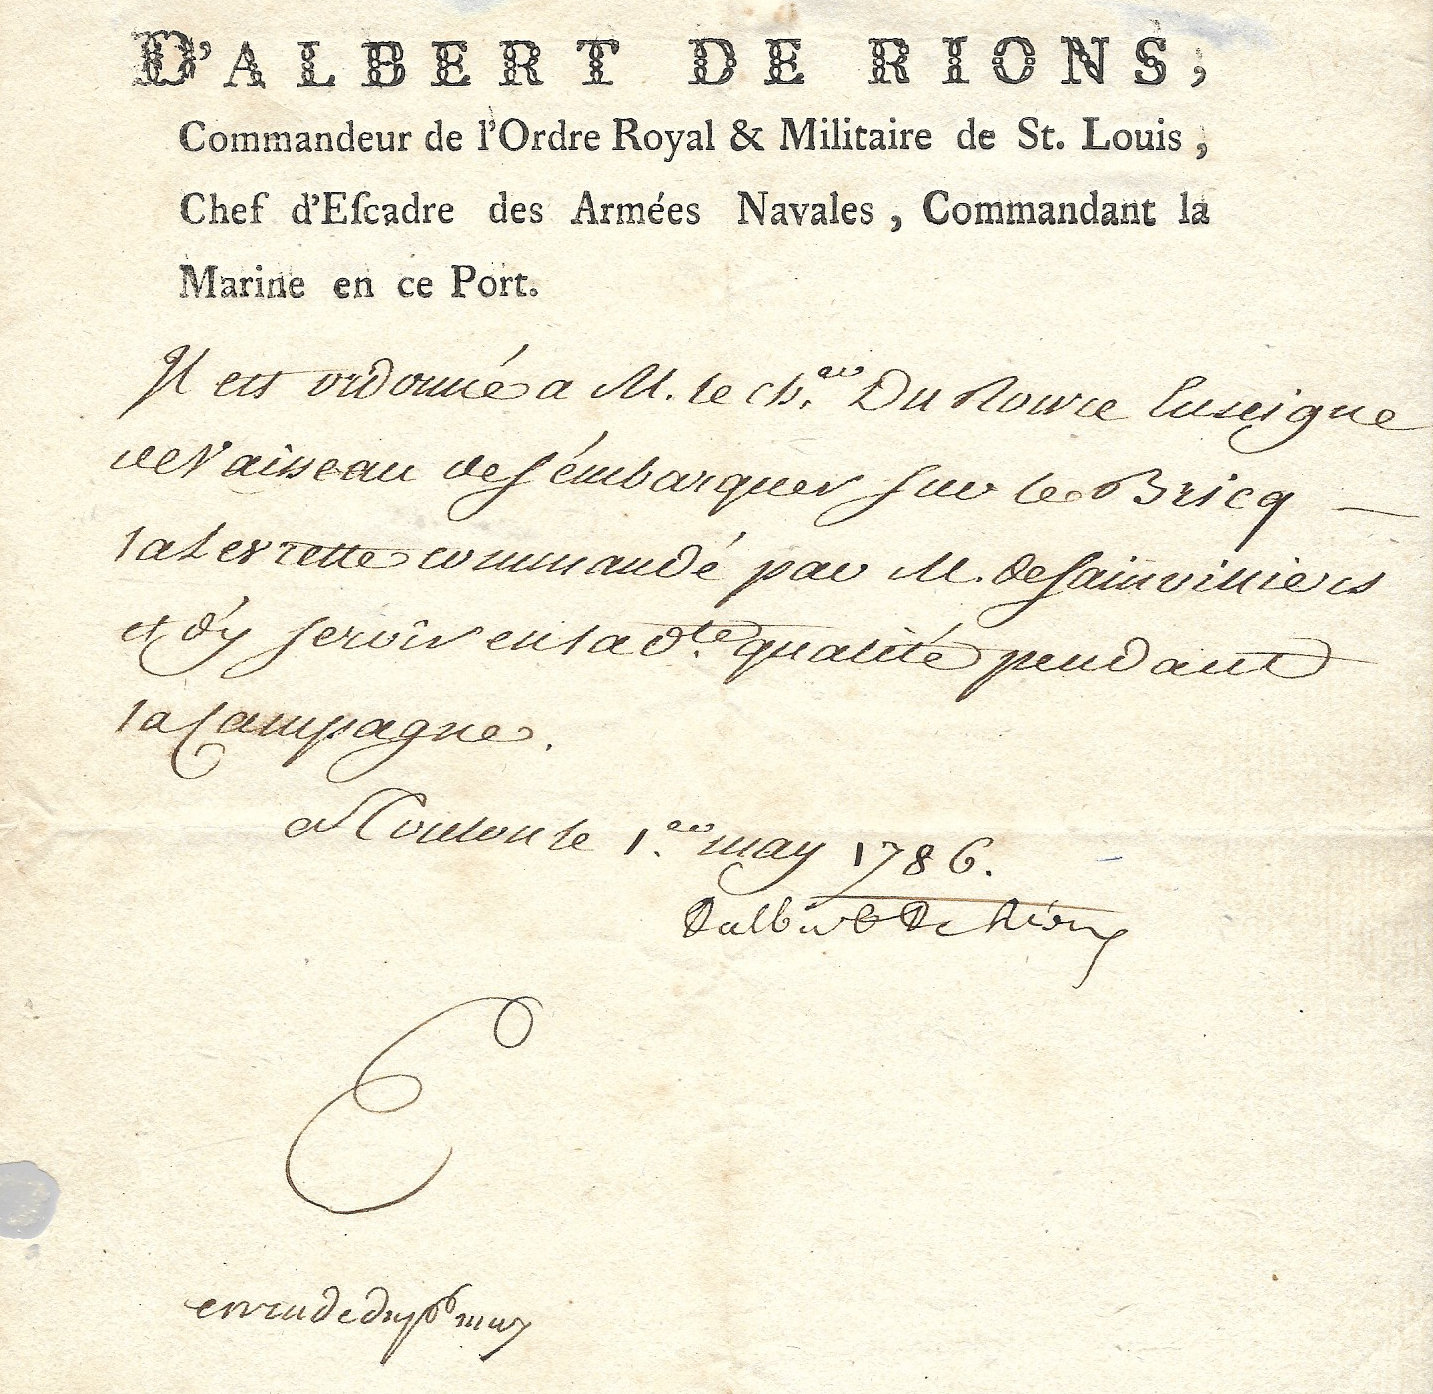 D'ALBERT DE RIONS,
Commandeur de l'Ordre Royal & Militaire de St. Louis,
Chef d'Eſcadre des Armées Navales, Commandant la
Marine en ce Port.
Il est ordonné a M. le ch.er Du Roure Enseigne
de Vaisseau de s'émbarquer sur le Bricq —
la Levrette commandé par M. de Sainvilliers
et d'y servir en la d.te qualité pendant
la Campagne.
a Toulon le 1.er may 1786.
Dalbert De Rions